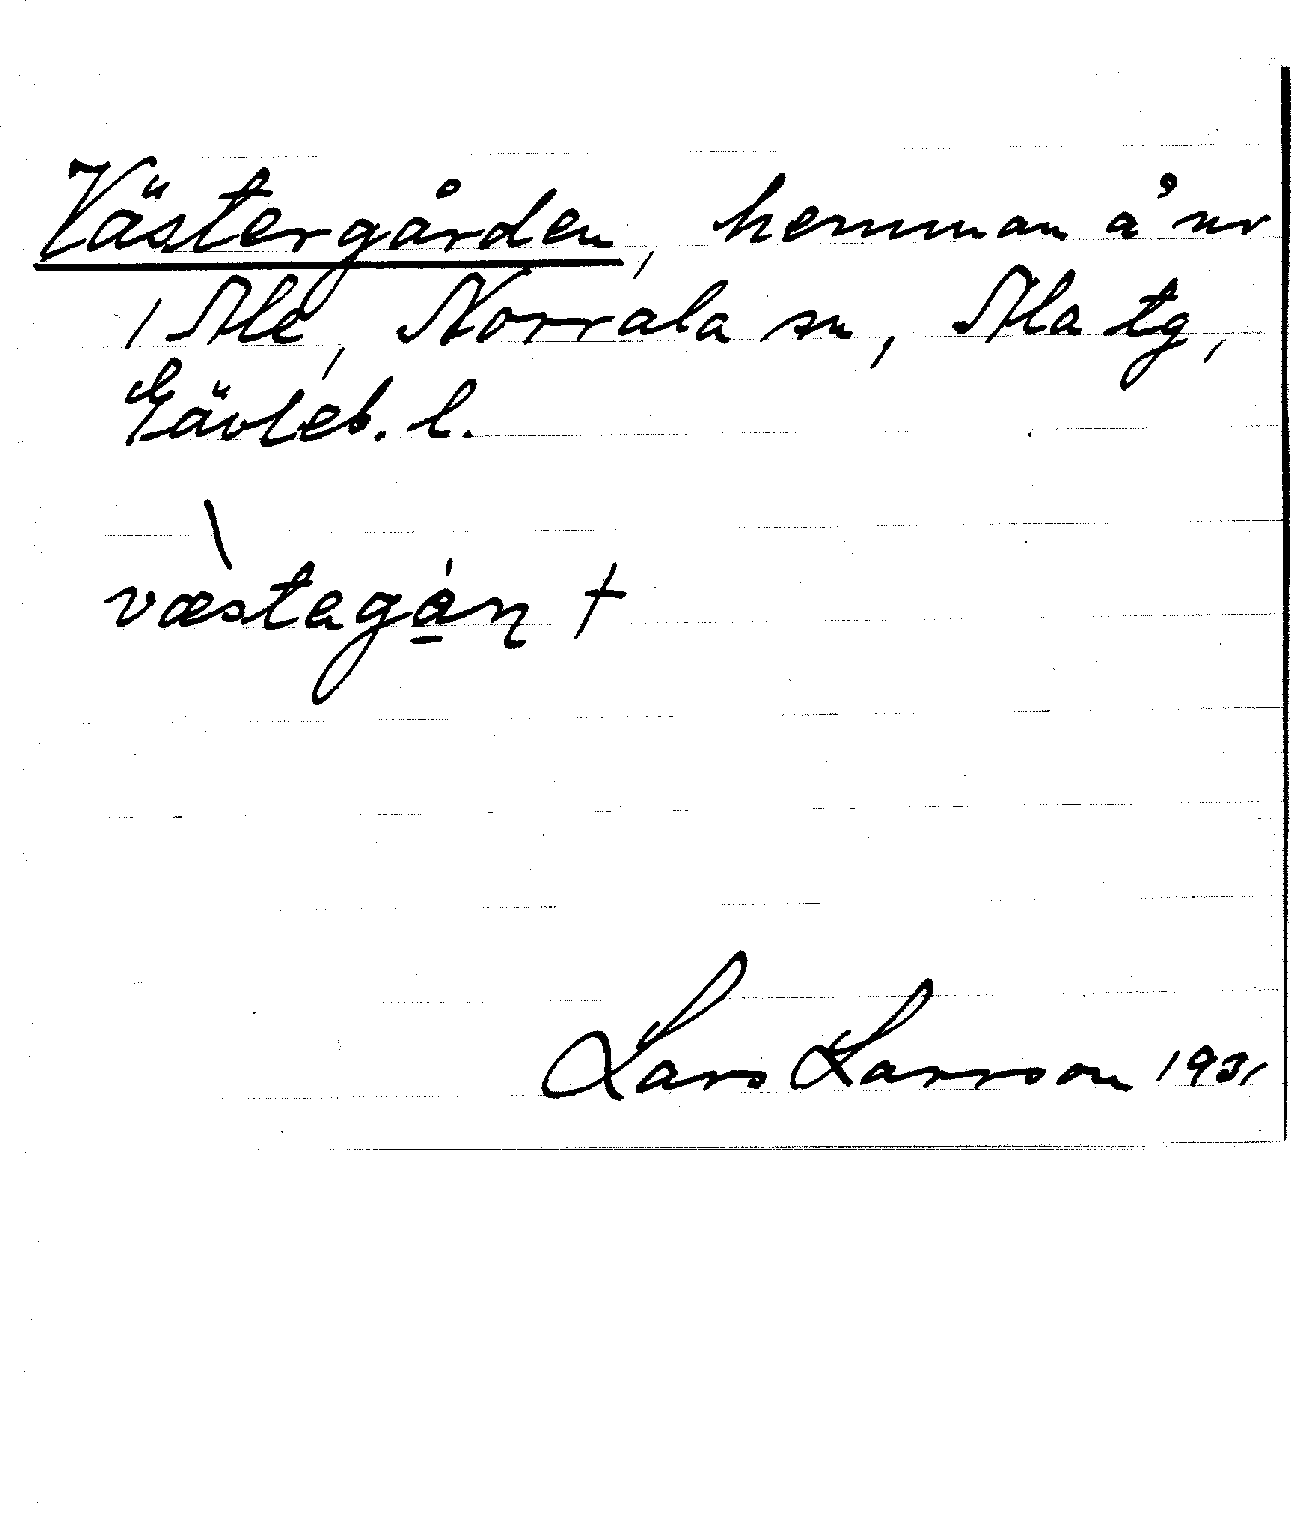 Västergården, hemman å nr
1 Ale, Norrala sn, Ala tg,
Gävleb. l.
væstagån +
Lars Larsson 1931